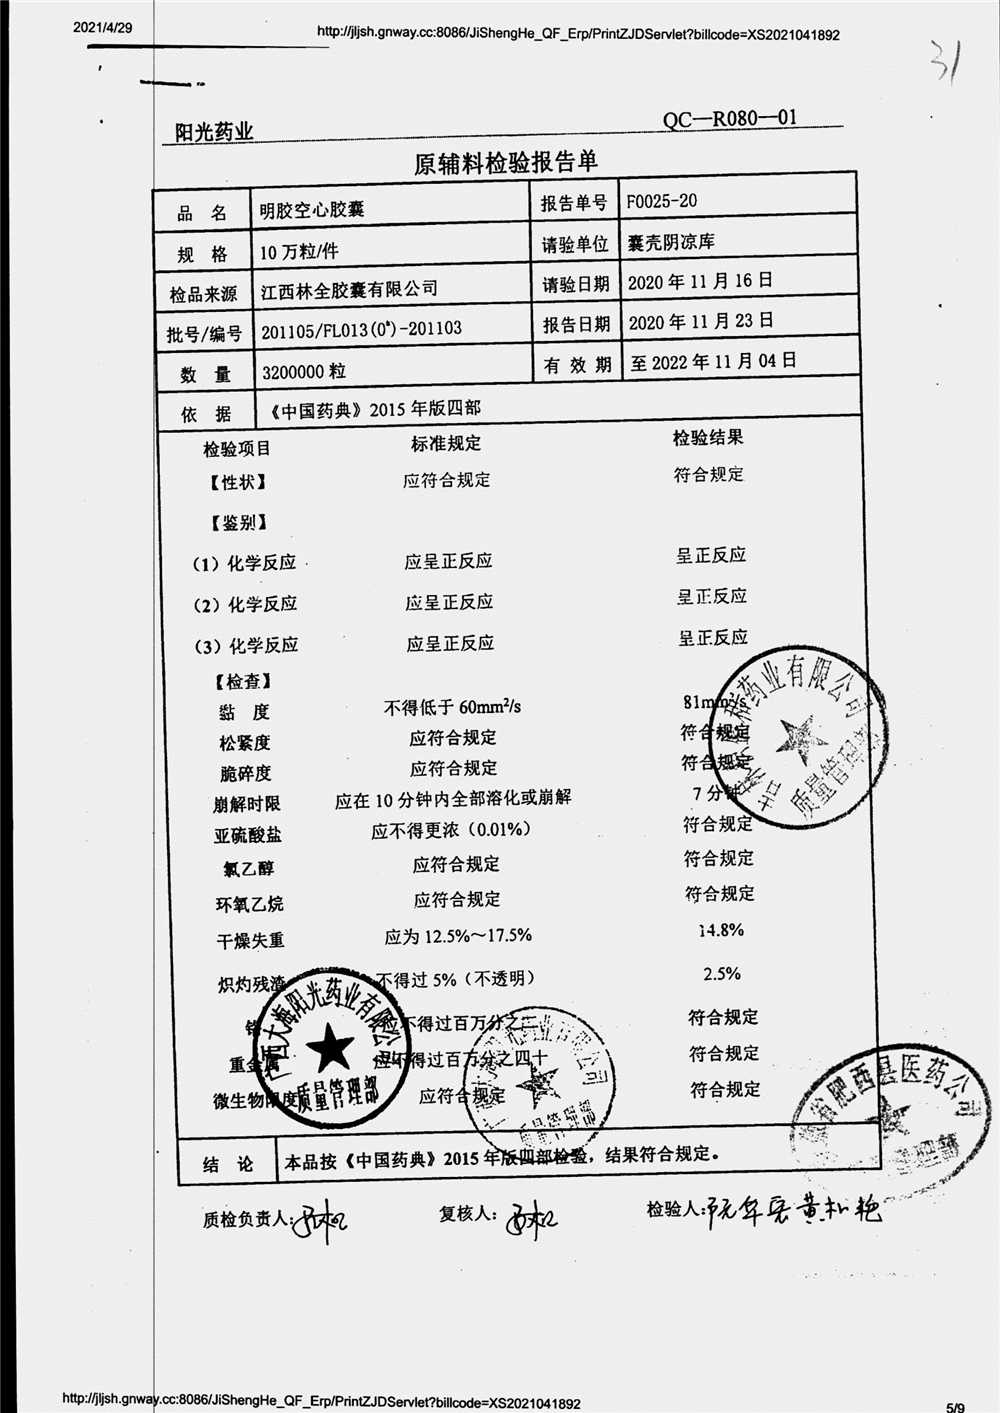 2021/4/29
http://jljsh.gnway.cc:8086/JiShengHe_QF_Erp/PrintZJDServlet?billcode=XS2021041892
31
阳光药业
QC—R080—01
原辅料检验报告单
品 名 明胶空心胶囊 报告单号 F0025-20
规 格 10万粒/件 请验单位 囊壳阴凉库
检品来源 江西林全胶囊有限公司 请验日期 2020年11月16日
批号/编号 201105/FL013(0#)-201103 报告日期 2020年11月23日
数 量 3200000粒 有 效 期 至2022年11月04日
依 据 《中国药典》2015年版四部
检验项目 标准规定 检验结果
【性状】 应符合规定 符合规定
【鉴别】
(1)化学反应 应呈正反应 呈正反应
(2)化学反应 应呈正反应 呈正反应
(3)化学反应 应呈正反应 呈正反应
【检查】
黏 度 不得低于60mm²/s 81mm²/s
松紧度 应符合规定 符合规定
脆碎度 应符合规定 符合规定
崩解时限 应在10分钟内全部溶化或崩解 7分钟
亚硫酸盐 应不得更浓(0.01%) 符合规定
氯乙醇 应符合规定 符合规定
环氧乙烷 应符合规定 符合规定
干燥失重 应为12.5%~17.5% 14.8%
炽灼残渣 不得过5%(不透明) 2.5%
铬 应不得过百万分之二 符合规定
重金属 应不得过百万分之四十 符合规定
微生物限度 应符合规定 符合规定
药业有限公司
质量管理部
广西大海阳光药业有限公司
质量管理部
质量管理部
省肥西县医药公司
管理部
结 论 本品按《中国药典》2015年版四部检验，结果符合规定。
质检负责人: 复核人: 检验人: 黄松艳
http://jljsh.gnway.cc:8086/JiShengHe_QF_Erp/PrintZJDServlet?billcode=XS2021041892
5/9